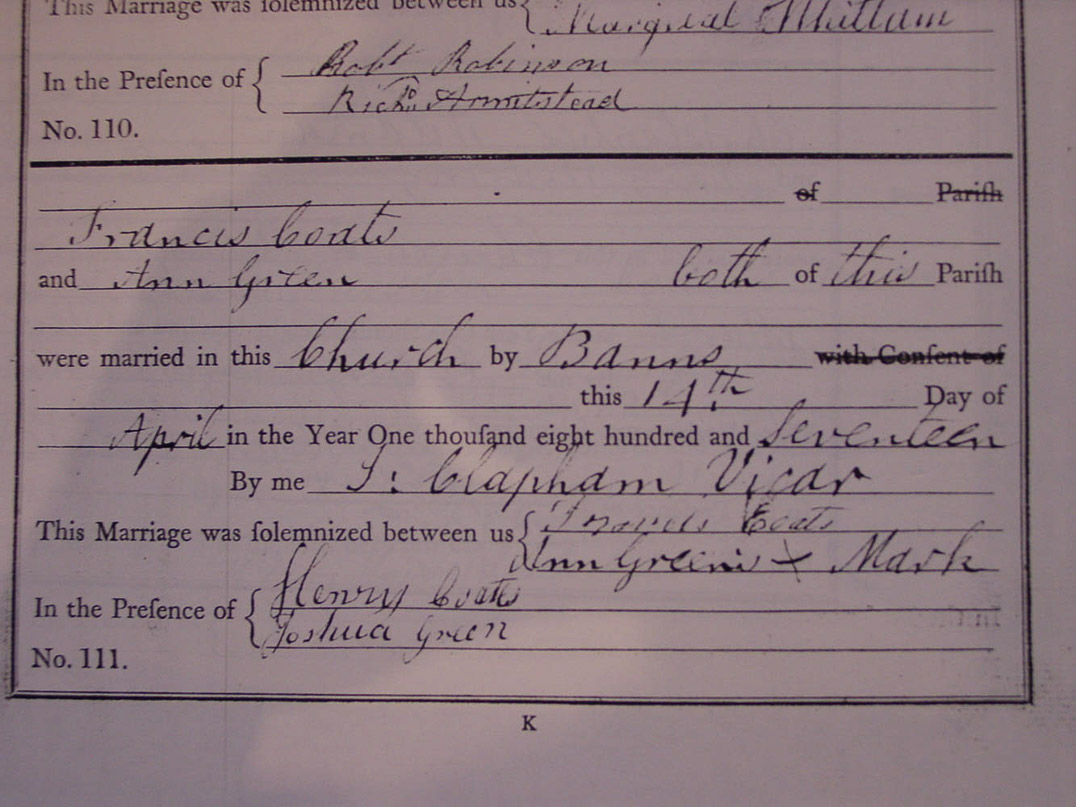 This Marriage was ſolemnized between us { Margreat Whittam
In the Preſence of { Robt Robinson
Richd Armitstead
No. 110.
of Pariſh
Francis Coats
and Ann Green both of this Pariſh
were married in this Church by Banns with Conſent of
this 14th Day of
April in the Year One thouſand eight hundred and Seventeen
By me T: Clapham Vicar
This Marriage was ſolemnized between us { Francis Coats
Ann Greens X Mark
In the Preſence of { Henry Coats
Joshua Green
No. 111.
K